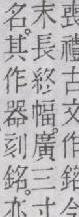 喪禮古文作銘
末長終幅廣三寸
名其作器刻銘亦